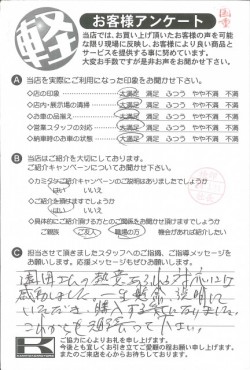 軽
お客様アンケート
当店では、お買い上げ頂いたお客様の声を可能
な限り現場に反映し、お客様により良い商品と
サービスを提供する事に努めています。
大変お手数ですが是非お声をお聞かせ下さい。
A 当店を実際にご利用になった印象をお聞かせ下さい。
◇店の印象 大満足 満足 ふつう やや不満 不満
◇店内・展示場の清掃 大満足 満足 ふつう やや不満 不満
◇お車の品揃え 大満足 満足 ふつう やや不満 不満
◇営業スタッフの対応 大満足 満足 ふつう やや不満 不満
◇納車時のお車の状態 大満足 満足 ふつう やや不満 不満
B 当店はご紹介を大切にしております。
ご紹介キャンペーンについてお聞かせ下さい。
◇カミタケご紹介キャンペーンのご説明はありましたでしょうか
はい いいえ
◇ご紹介を頂けますでしょうか
はい いいえ
◇具体的にご紹介頂ける方とのご関係をお聞かせ頂けますでしょうか
ご親族 ご友人 職場の方 機会があれば紹介したい
C 担当させて頂きましたスタッフへのご指摘、ご指導を
お願いします。応援メッセージもぜひお願いします。
さんの熱意あふれる対応に
感動しました。一生懸命、説明
いただき、購入する
これからも頑張って下さい。
K
ご協力に心よりお礼を申し上げます。
今後とも宜しくお引き立てご愛顧の程お願い申し上げます。
またのご来店を心からお待ちしております。